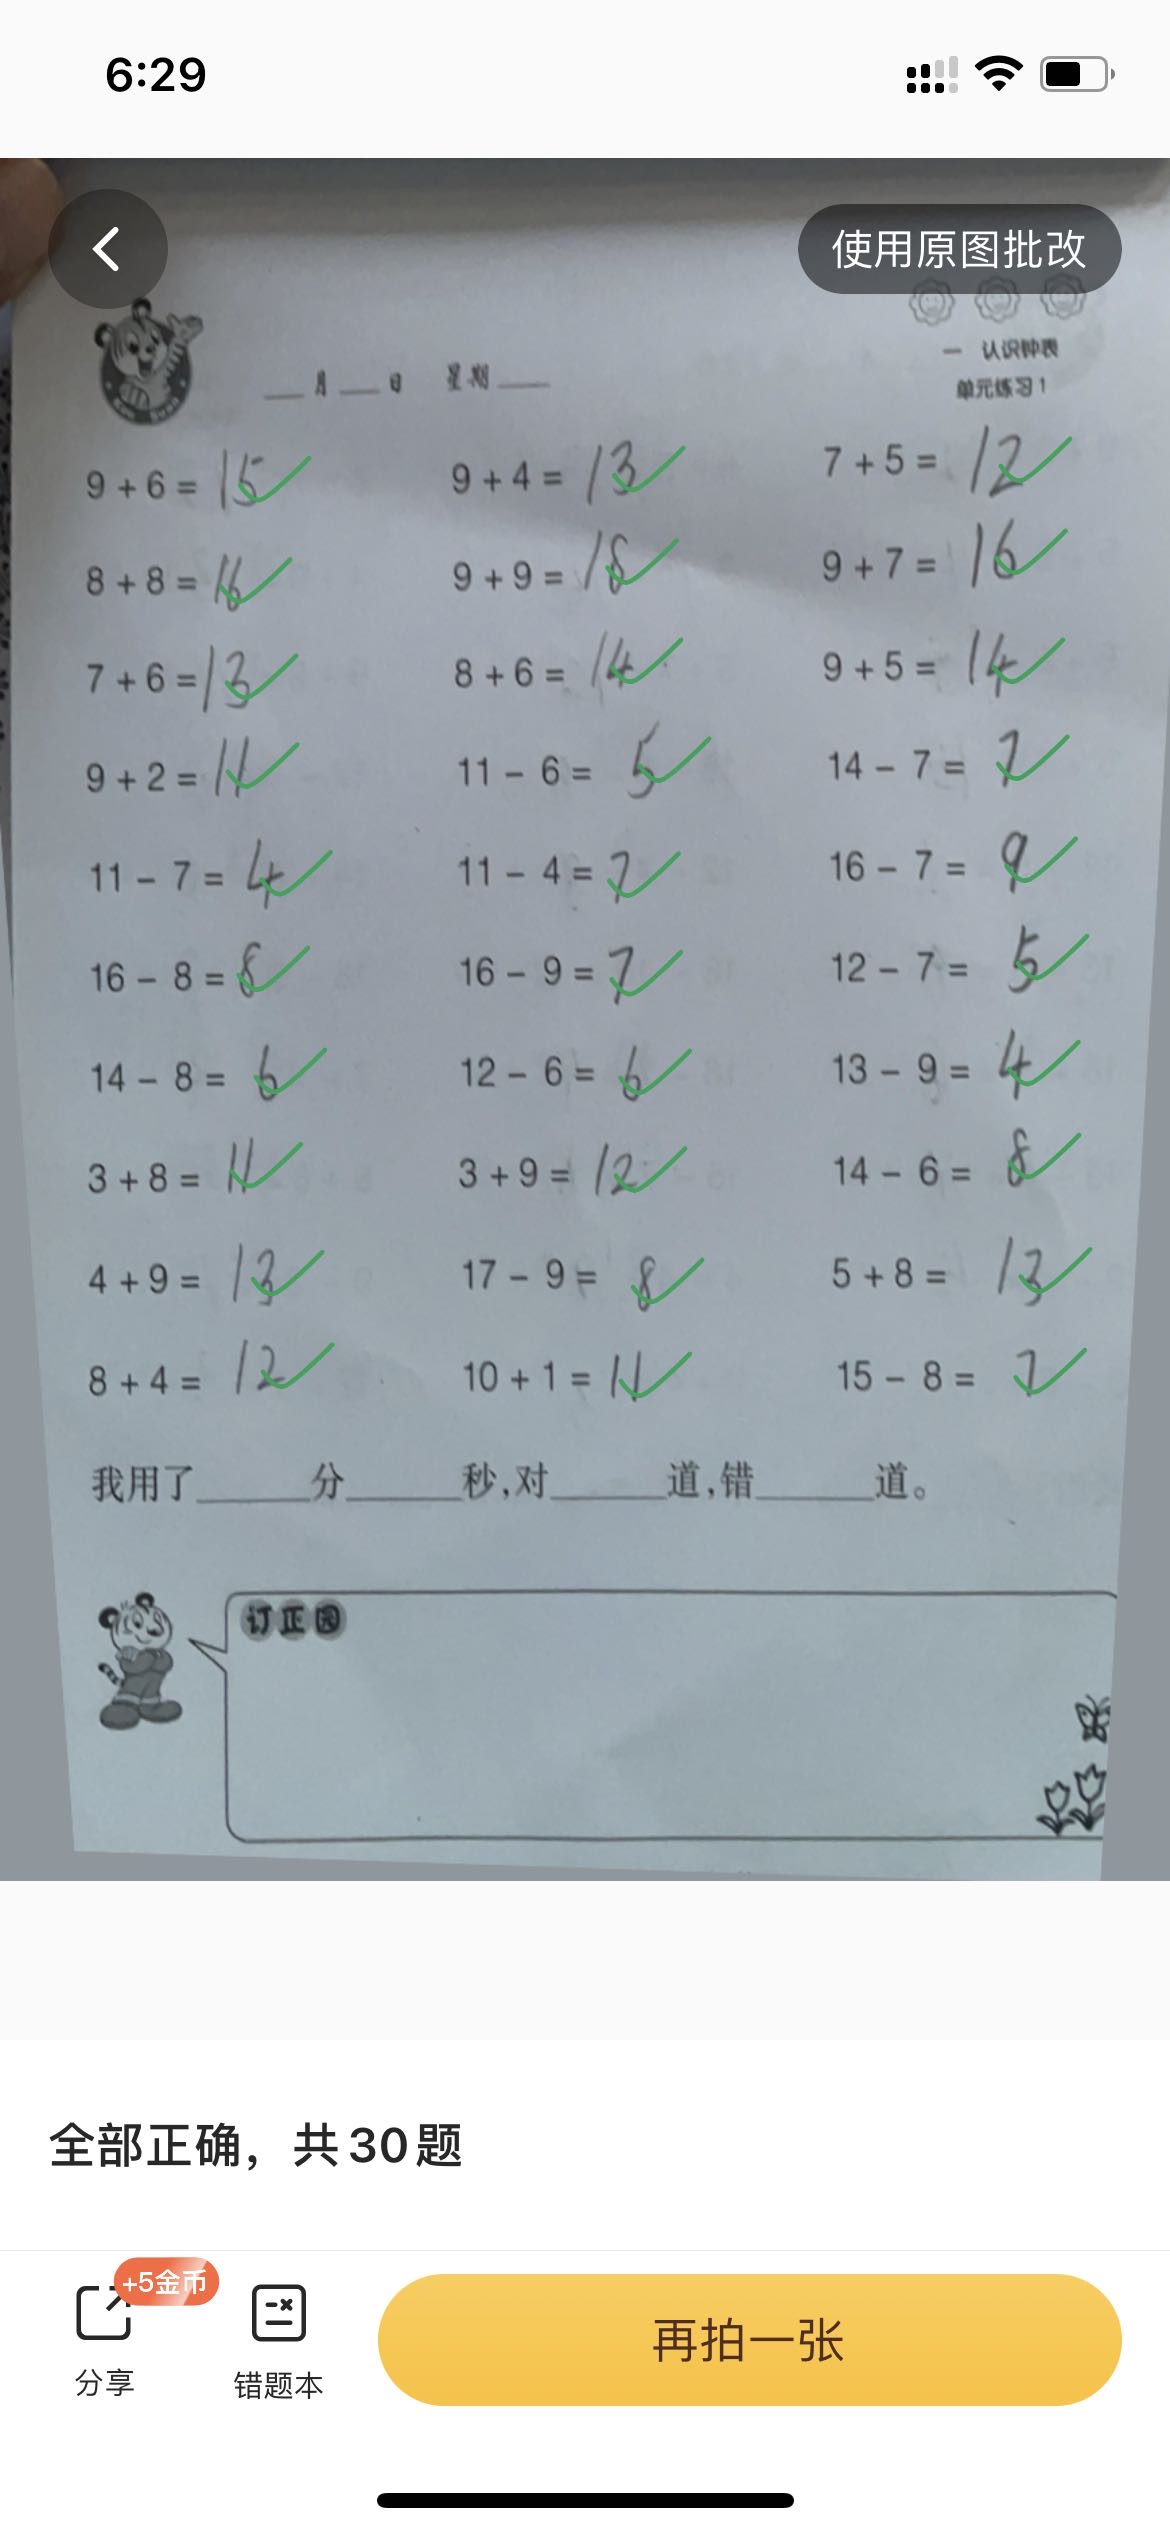 6:29
使用原图批改
一 认识钟表
___月___日 星期___
单元练习1
9+6=15 9+4=13 7+5=12
8+8=16 9+9=18 9+7=16
7+6=13 8+6=14 9+5=14
9+2=11 11-6=5 14-7=7
11-7=4 11-4=7 16-7=9
16-8=8 16-9=7 12-7=5
14-8=6 12-6=6 13-9=4
3+8=11 3+9=12 14-6=8
4+9=13 17-9=8 5+8=13
8+4=12 10+1=11 15-8=7
我用了______分______秒,对______道,错______道。
订正园
全部正确，共30题
+5金币
分享
错题本
再拍一张